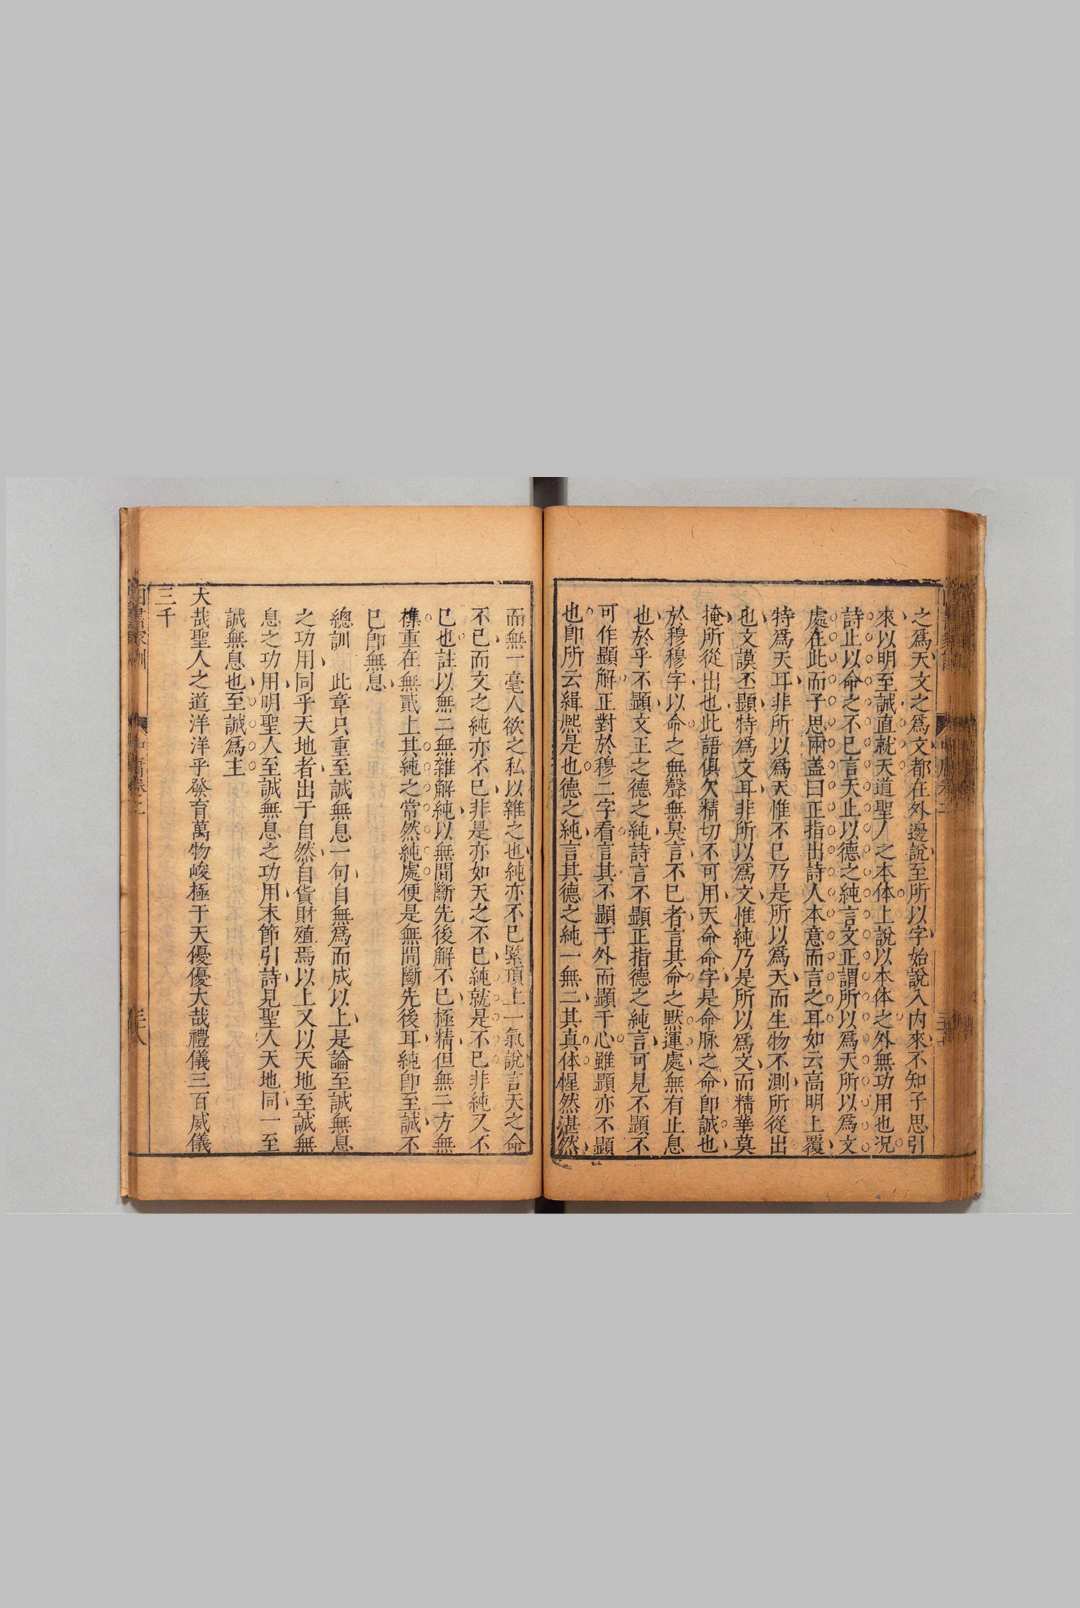 之爲天文之爲文都在外邊說至所以字始說入内來不知子思引
來以明至誠直就天道聖人之本体上說以本体之外無功用也况
詩止以命之不已言天止以德之純言文正謂所以爲天所以爲文
處在此而子思兩盖曰正指出詩人本意而言之耳如云高明上覆
特爲天耳非所以爲天惟不已乃是所以爲天而生物不測所從出
也文謨丕顯特爲文耳非所以爲文惟純乃是所以爲文而精華莫
掩所從出也此語俱欠精切不可用天命命字是命脉之命卽誠也
於穆穆字以命之無聲無臭言不已者言其命之默運處無有止息
也於乎不顯文王之德之純詩言不顯正指德之純言可見不顯不
可作顯解正對於穆二字看言其不顯于外而顯于心雖顯亦不顯
也卽所云緝熙是也德之純言其德之純一無二其真体惺然湛然
而無一毫人欲之私以雜之也純亦不已緊頂上一氣說言天之命
不已而文之純亦不已非是亦如天之不已純就是不已非純又不
已也註以無二無雜解純以無間斷先後解不已極精但無二方無
雜重在無貳上其純之常然純處便是無間斷先後耳純卽至誠不
已卽無息
總訓 此章只重至誠無息一句自無爲而成以上是論至誠無息
之功用同乎天地者出于自然自貨財殖焉以上又以天地至誠無
息之功用明聖人至誠無息之功用末節引詩見聖人天地同一至
誠無息也至誠爲主
大哉聖人之道洋洋乎發育萬物峻極于天優優大哉禮儀三百威儀
三千